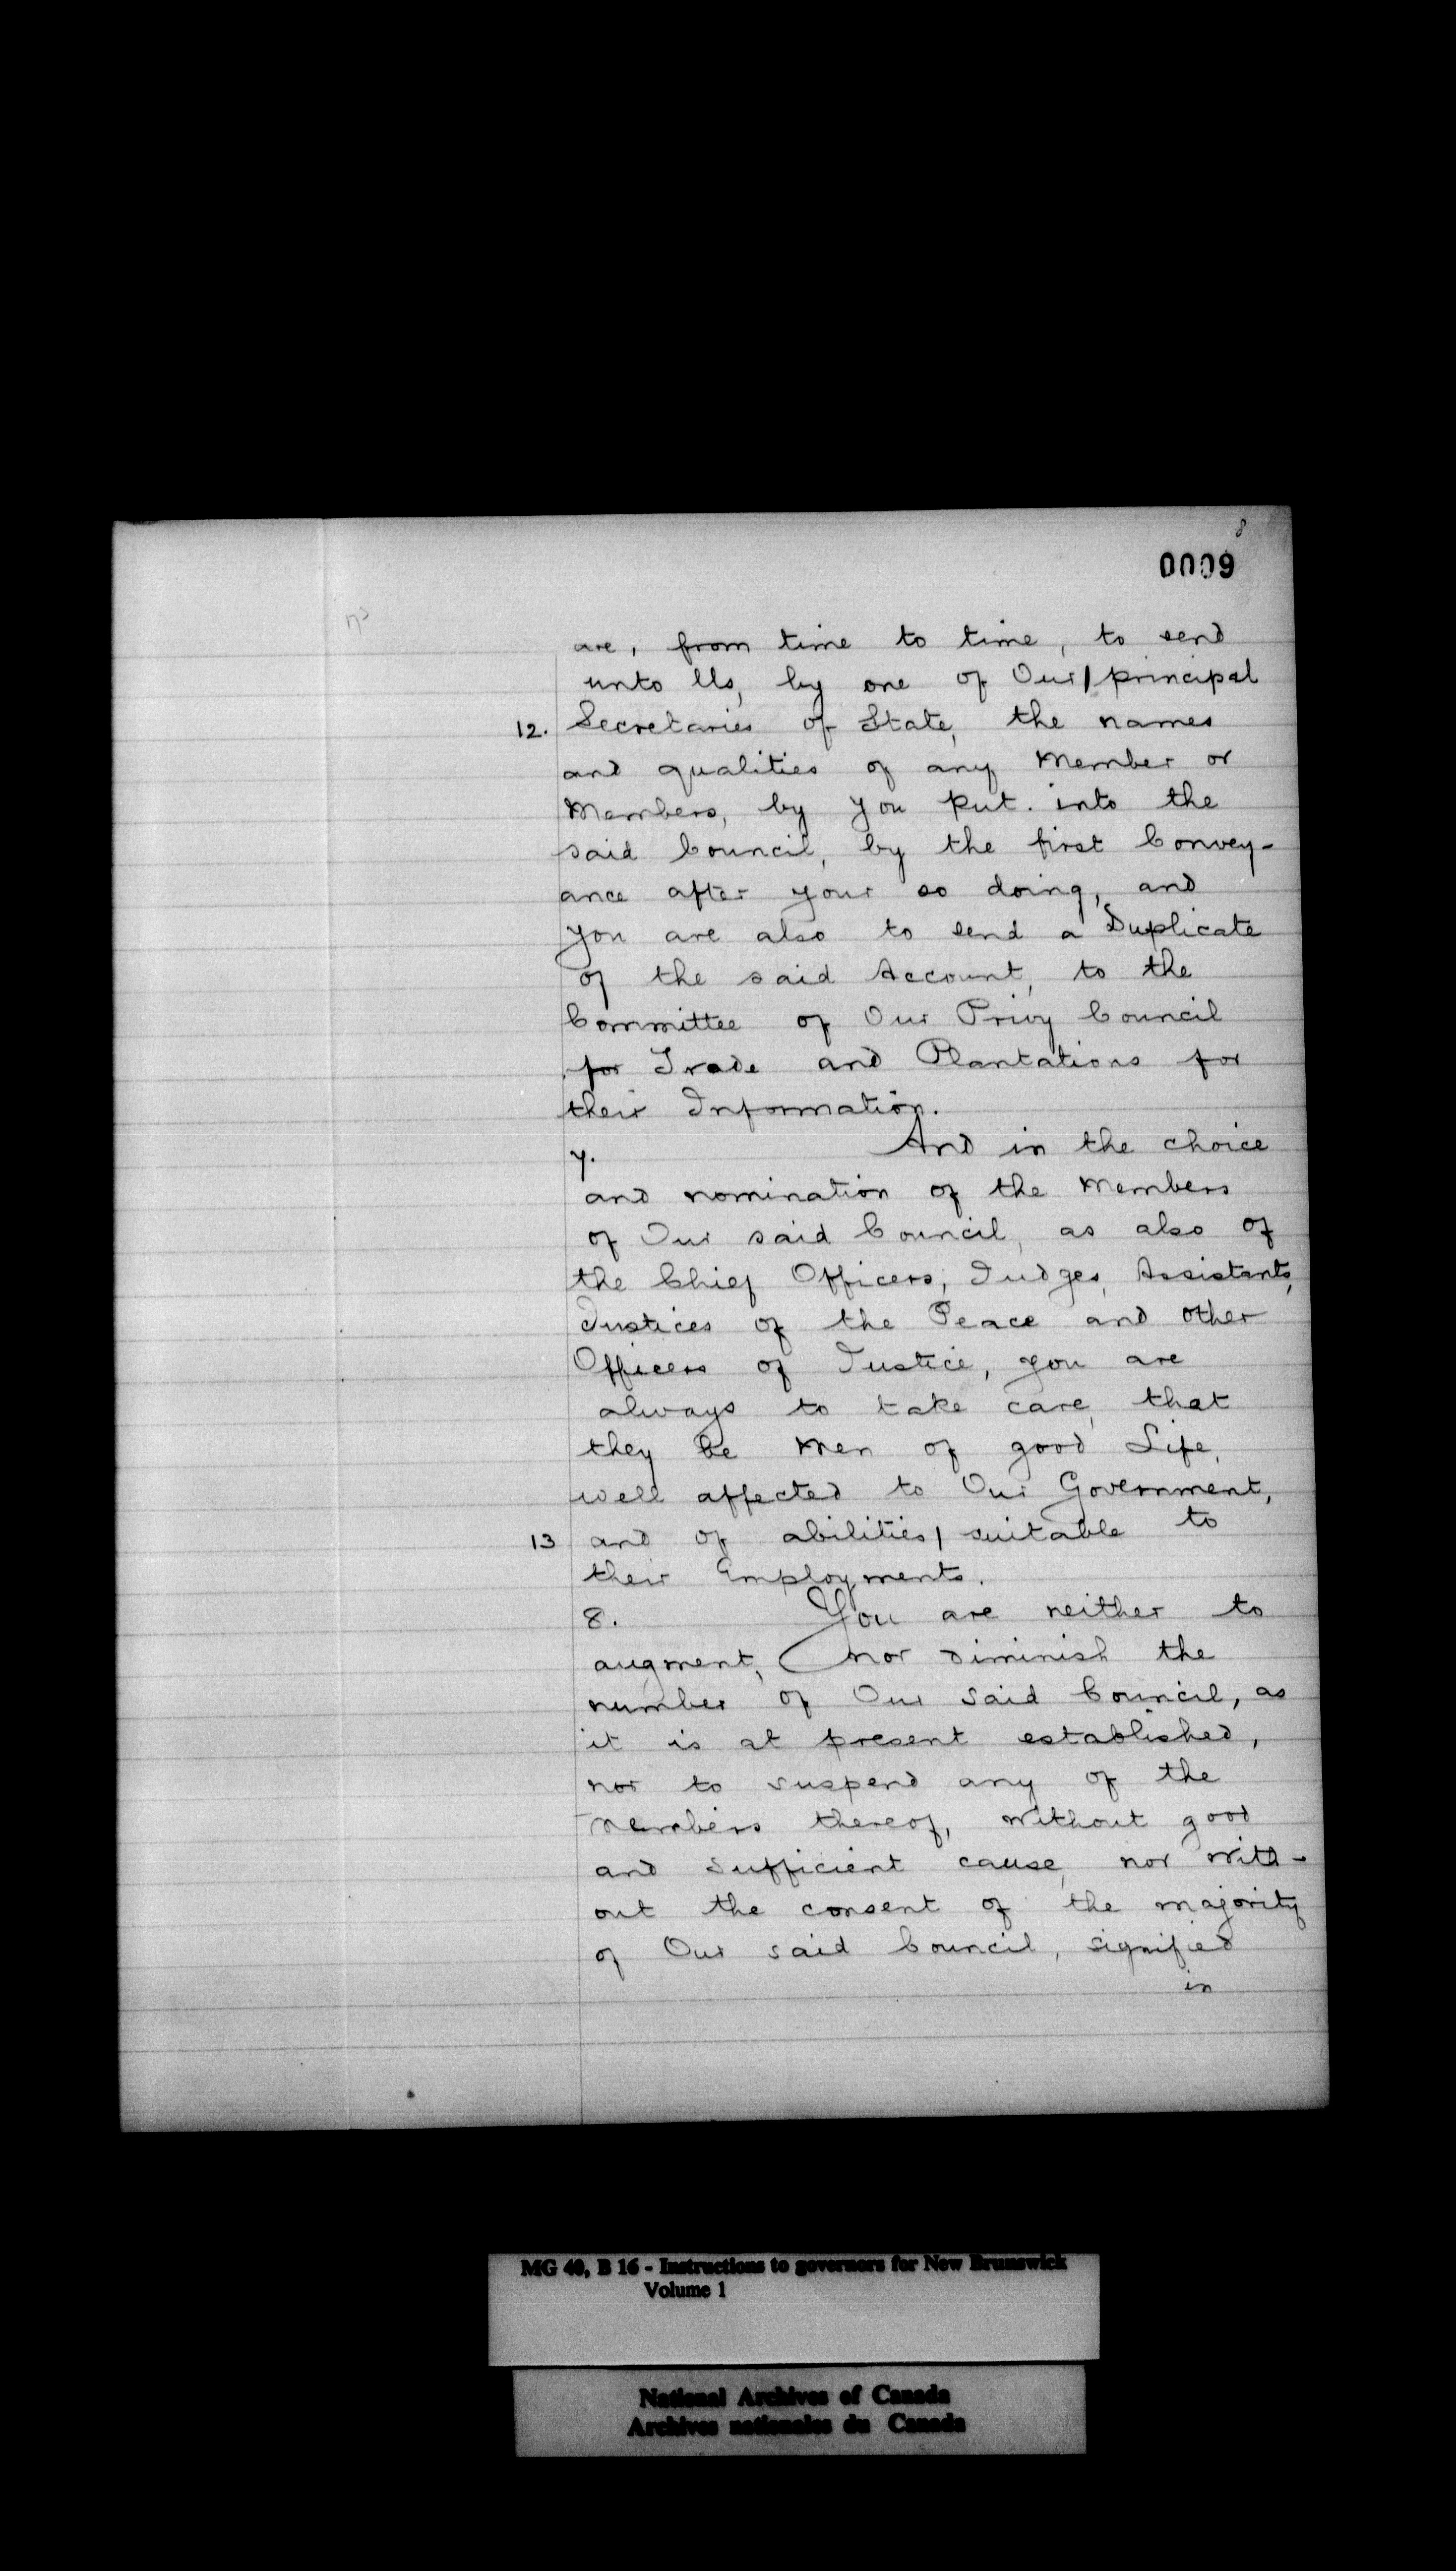 8
0009
are, from time to time, to send
unto Us, by one of Our/principal
12. Secretaries of State, the names
and qualities of any Member or
Members, by you put into the
said Council, by the first Convey-
ance after your so doing, and
you are also to send a Duplicate
of the said Account, to the
Committee of Our Privy Council
for Trade and Plantations for
their Information.
7. And in the choice
and nomination of the Members
of Our said Council, as also of
the Chief Officers, Judges, Assistants,
Justices of the Peace and other
Officers of Justice, you are
always to take care, that
they be Men of good Life,
well affected to Our Government,
13 and of abilities/ suitable to
their Employments.
8. You are neither to
augment, nor diminish the
number of Our said Council, as
it is at present established,
nor to suspend any of the
Members thereof, without good
and sufficient cause, nor with-
out the consent of the majority
of Our said Council, signified
in
MG 40, B 16 - Instructions to governors for New Brunswick
Volume 1
National Archives of Canada
Archives nationales du Canada